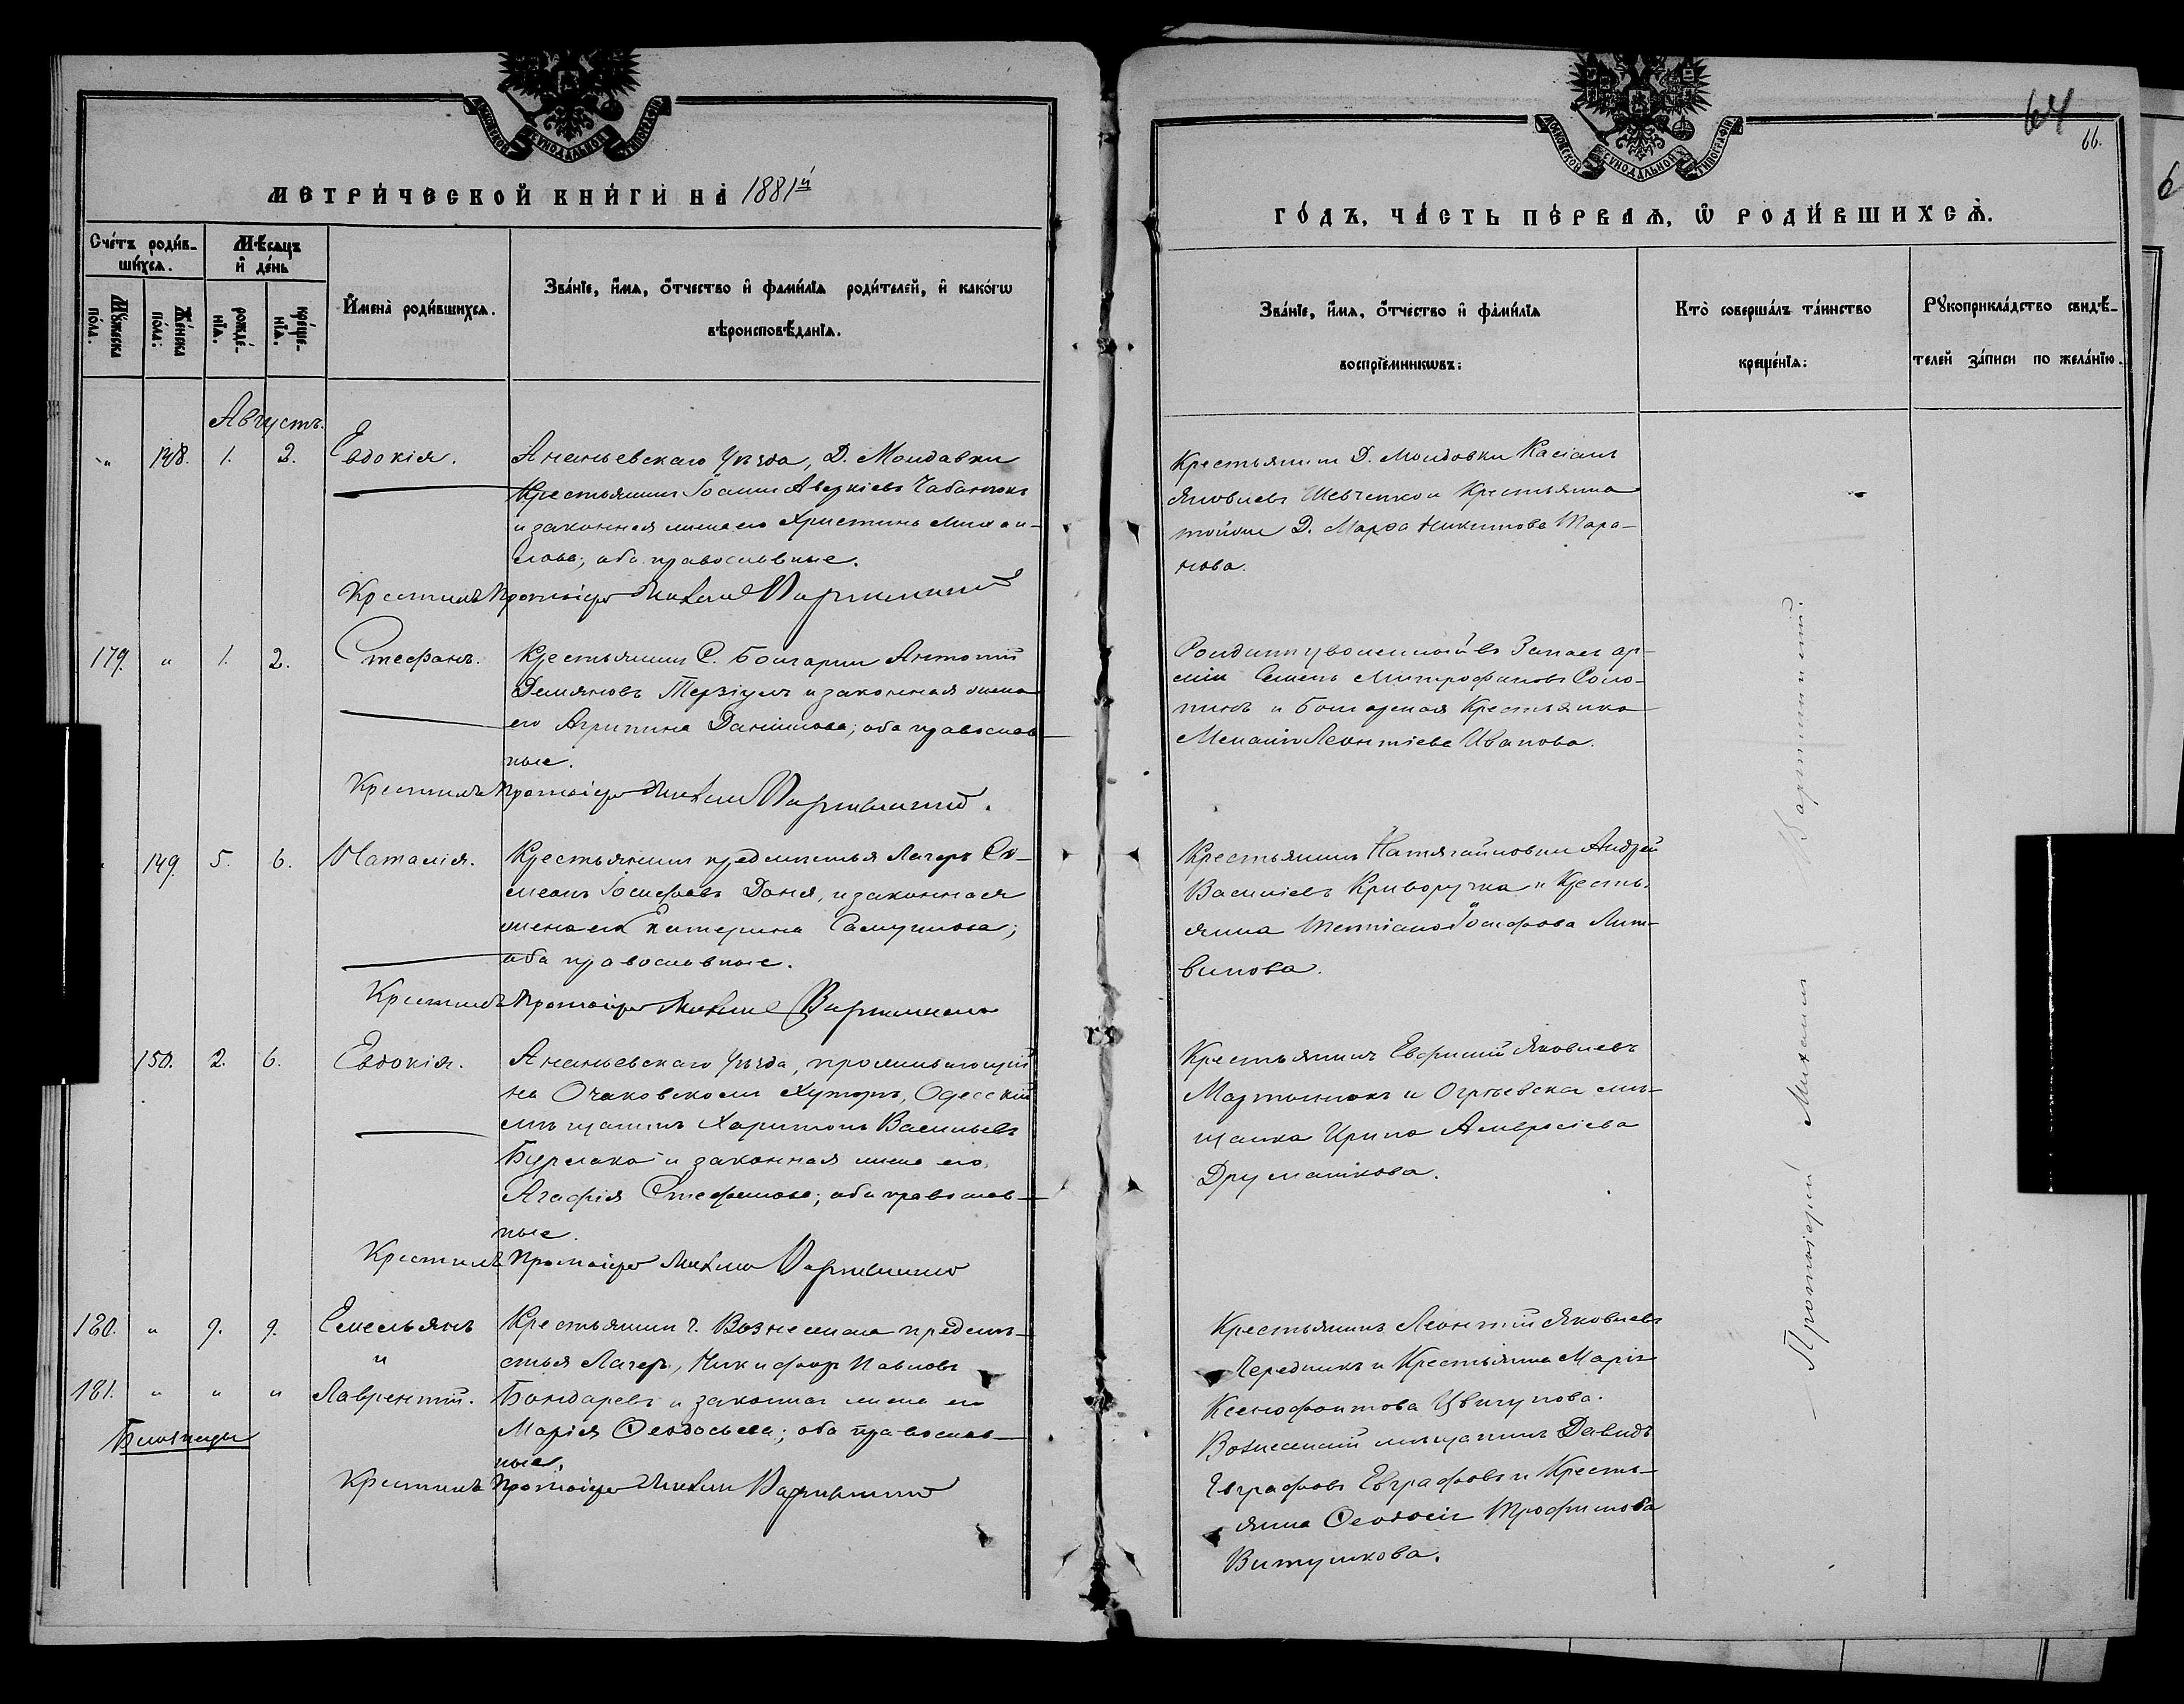 МОСКОВСКОЙ СѴНОДАЛЬНОЙ ТИПОГРАФІИ
МЕТРИ́ЧЕСКОЙ КНИ́ГИ НА 1881й
Сче́тъ роди́в-
ши́хсѧ.
Мѣ́сѧцъ
и҆ де́нь
Мꙋ́жеска
по́ла.
Же́нска
по́ла:
рожде́-
нїѧ.
креще́-
нїѧ.
И҆мена̀ роди́вшихсѧ.
Зва́нїе, и҆́мѧ, ѻ҆́тчество и҆ фами́лїѧ роди́телей, и҆ како́гѡ
вѣроисповѣ́данїѧ.
Августъ.
" 148. 1. 2. Евдокія.
Ананьевскаго Уѣзда, Д. Молдавки
Крестьянинъ Іоаннъ Аверкіевъ Чабанюкъ
и законная жена его Христина Михаи-
лова; оба православные.
Крестилъ Протоіерей Михаилъ
179. " 1. 2. Стефанъ.
Крестьянинъ С. Болгарки Антоній
Демяновъ Терзіулъ и законная жена
его Агрипина Даніилова; оба православ-
ные.
Крестилъ Протоіерей Михаилъ
149. 5. 6. Наталія.
Крестьянинъ предмѣстья Лагерь Си-
меонъ Іосифовъ Доня, и законная
жена его Екатерина Самуилова;
оба православные.
Крестилъ Протоіерей Михаилъ
150. 2. 6. Евдокія.
Ананьевскаго Уѣзда, проживающій
на Очаковскомъ Хуторѣ, Одесскій
мѣщанинъ Харитонъ Васильевъ
Бурлака и законная жена его
Агафія Стефанова; оба православ-
ные.
Крестилъ Протоіерей Михаилъ
180. " 9. 9. Емельянъ
и
181. " " " Лаврентій.
Близнецы
Крестьянинъ г. Вознесенска предмѣ-
стья Лагерь, Никифоръ Павловъ
Бондаревъ и законная жена его
Марія Феодосьева; оба православ-
ные.
Крестилъ Протоіерей Михаилъ
64
66.
МОСКОВСКОЙ СѴНОДАЛЬНОЙ ТИПОГРАФІИ
ГО́ДЪ, ЧА́СТЬ ПЕ́РВАѦ, Ѡ҆ РОДИ́ВШИХСѦ.
Зва́нїе, и҆́мѧ, ѻ҆́тчество и҆ фами́лїѧ
воспрїе́мникѡвъ:
Кто̀ соверша́лъ та́инство
креще́нїѧ:
Рꙋкоприкла́дство свидѣ́-
телей за́писи по жела́нїю.
Крестьянинъ Д. Молдовки Касіанъ
Яковлевъ Шевченко и Крестьянка
тойже Д. Марѳа Никитова Тара-
нова.
Солдатъ уволенный въ Запасъ ар-
міи Семенъ Митрофановъ Соло-
нинъ и Болгарская Крестьянка
Меланія Леонтіева Иванова.
Крестьянинъ Натягайловки Андрей
Василіевъ Криворучка и Кресть-
янка Іосифова Лит-
винова.
Крестьянинъ Евфимій Яковлевъ
Мартынюкъ и мѣ-
щанка Ирина Амвросіева
Друмашкова.
Крестьянинъ Леонтій Яковлевъ
Чередникъ и Крестьянка Марія
Ксенофонтова Цвигунова.
Вознесенскій мѣщанинъ Давидъ
Евграфовъ Евграфовъ и Кресть-
янка Феодосія Трофимова
Витушкова.
Протоіерей Михаилъ
6